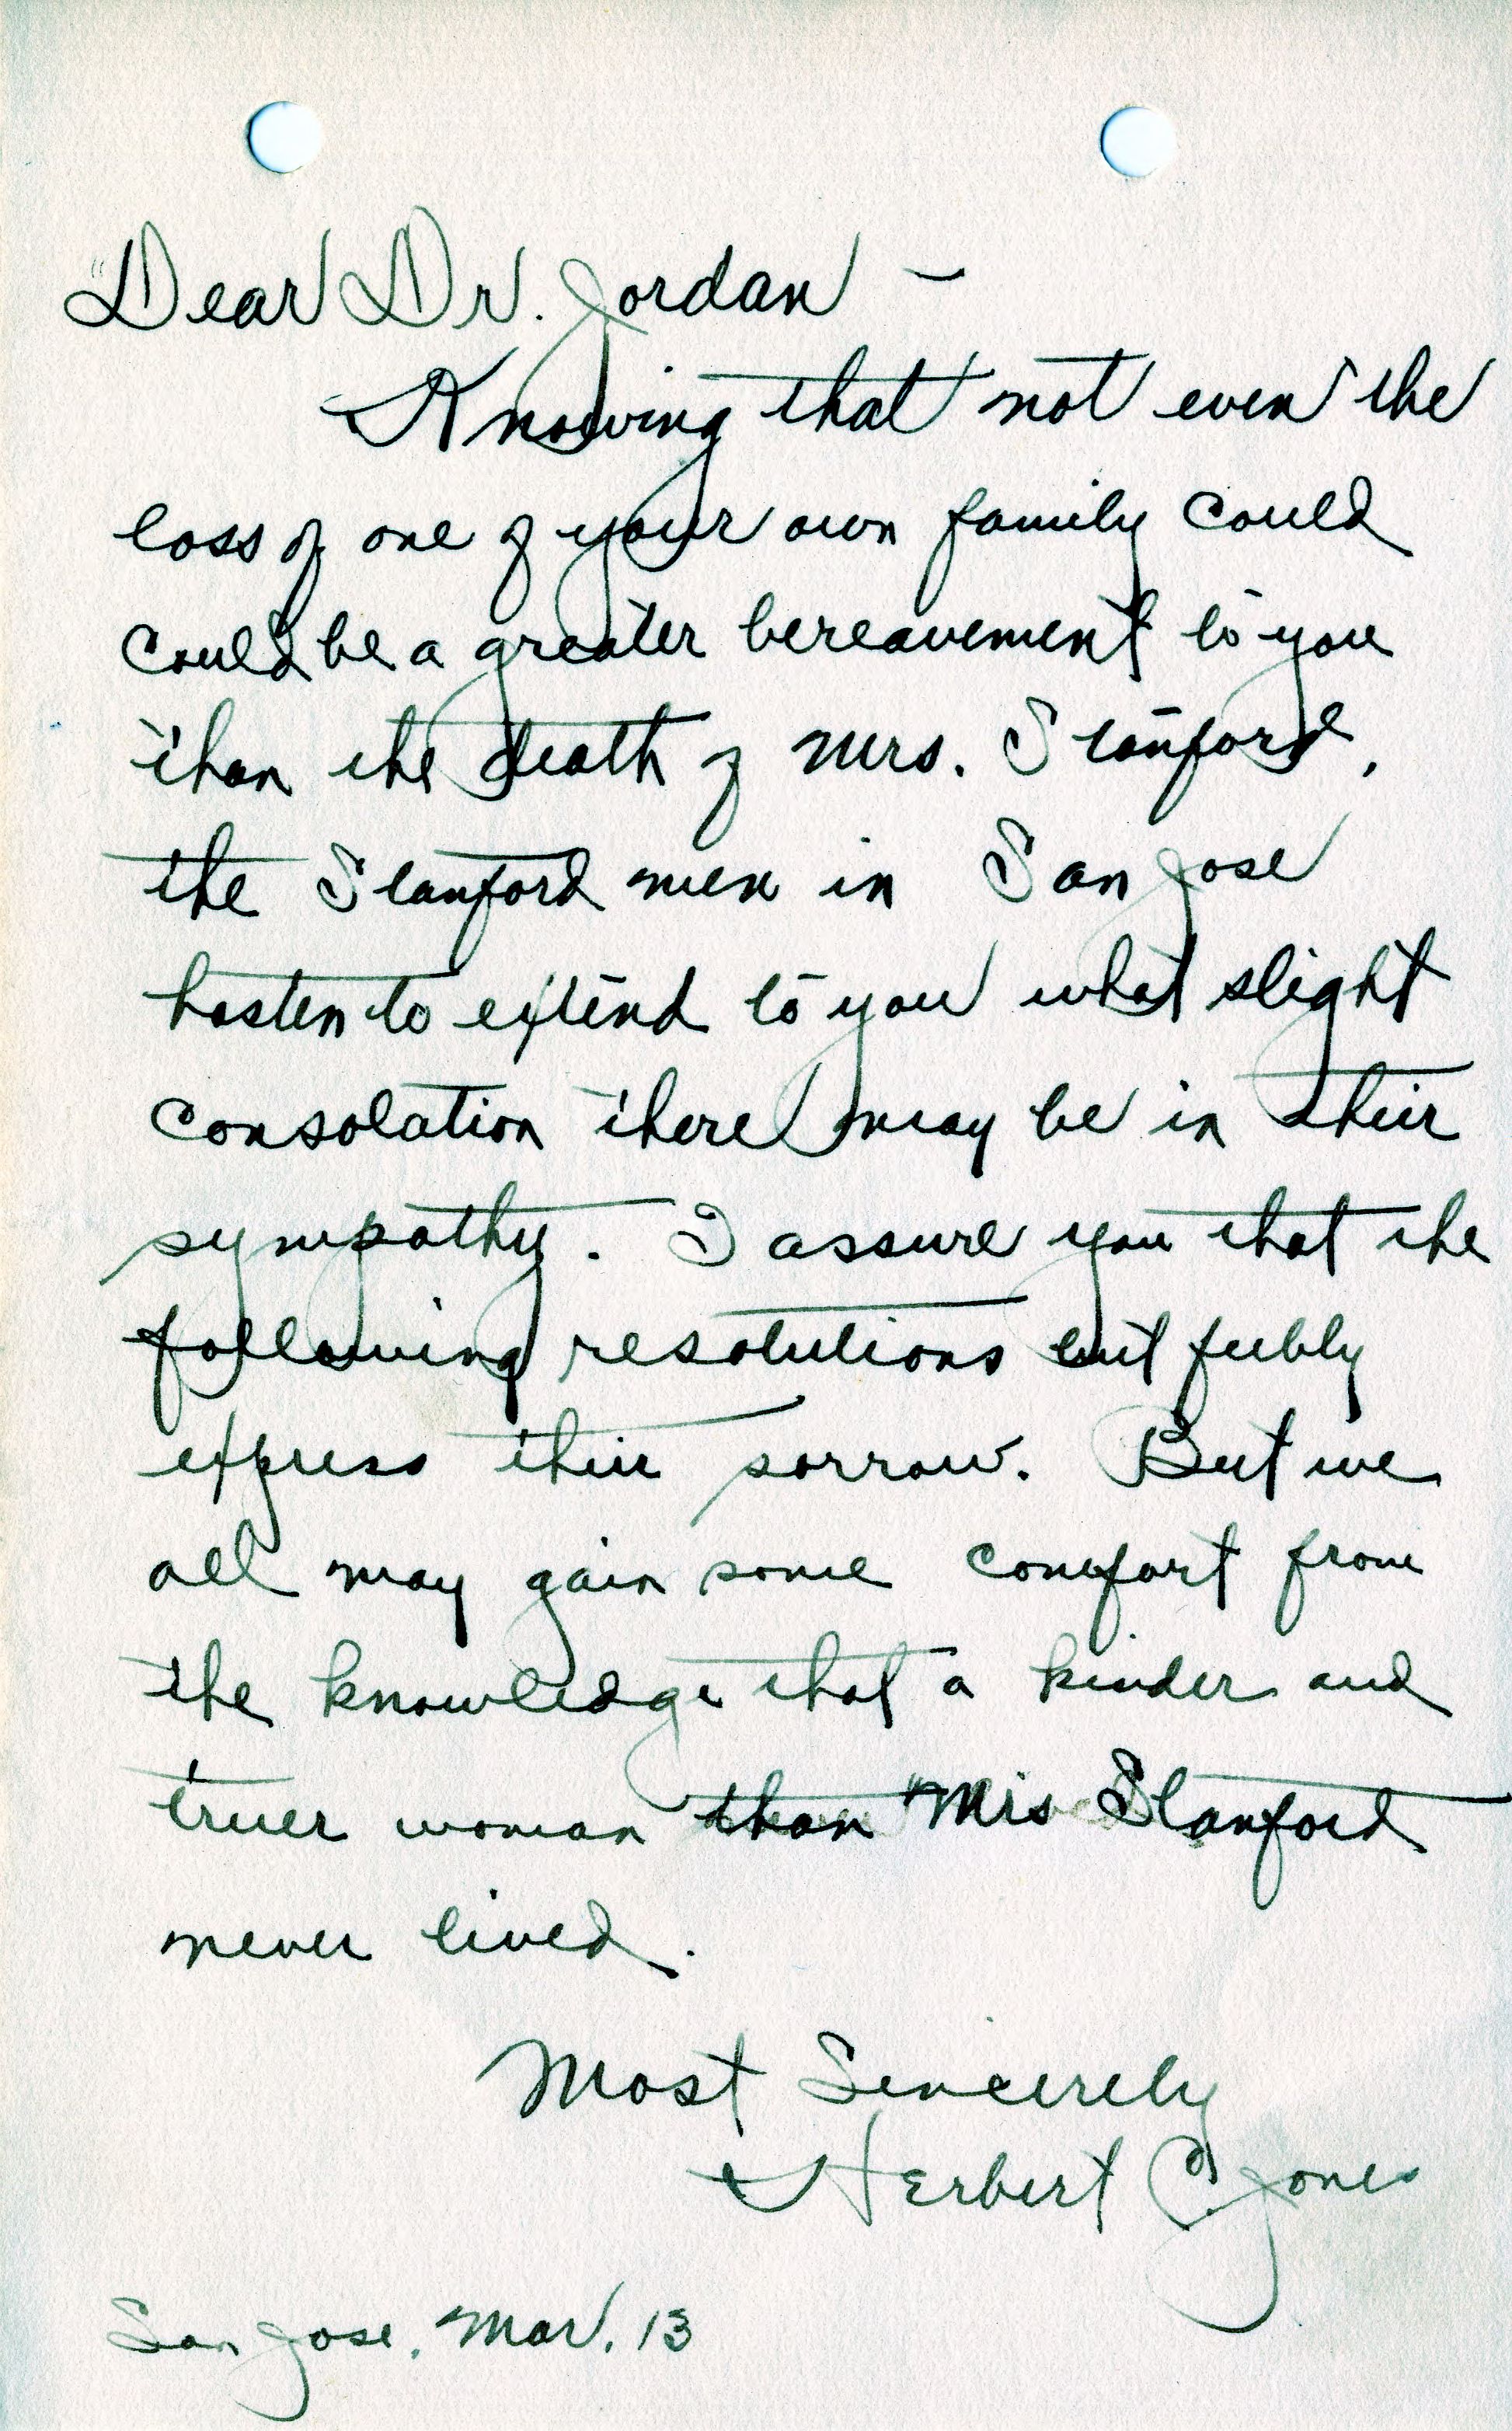 Dear Dr. Jordan –
Knowing that not even the
loss of one of your own family could
could be a greater bereavement to you
than the death of Mrs. Stanford,
the Stanford men in San Jose
hasten to extend to you what slight
consolation there may be in their
sympathy. I assure you that the
following resolutions but feebly
express their sorrow. But we
all may gain some comfort from
the knowledge that a kinder and
truer woman than Mrs Stanford
never lived.
Most Sincerely
Herbert C. Jones
San Jose, Mar. 13